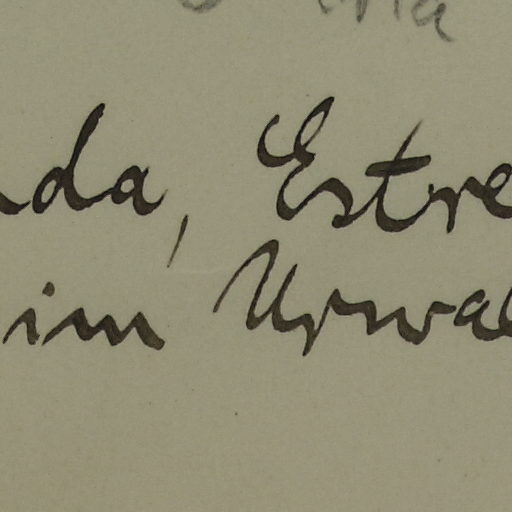 nda, Estre
im Urwal